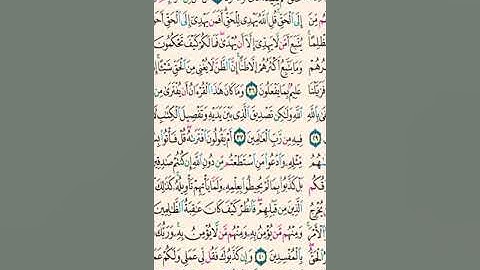 إِلَى ٱلْحَقِّ قُلِ ٱللَّهُ يَهْدِى لِلْحَقِّ أَفَمَن يَهْدِىٓ إِلَى ٱلْحَقِّ
يُتَّبَعَ أَمَّن لَّا يَهِدِّىٓ إِلَّآ أَن يُهْدَىٰ فَمَا لَكُمْ كَيْفَ تَحْكُمُونَ
وَمَا يَتَّبِعُ أَكْثَرُهُمْ إِلَّا ظَنًّا إِنَّ ٱلظَّنَّ لَا يُغْنِى مِنَ ٱلْحَقِّ شَيْـًٔا
عَلِيمٌۢ بِمَا يَفْعَلُونَ ٣٦ وَمَا كَانَ هَـٰذَا ٱلْقُرْءَانُ أَن يُفْتَرَىٰ مِن
ٱللَّهِ وَلَـٰكِن تَصْدِيقَ ٱلَّذِى بَيْنَ يَدَيْهِ وَتَفْصِيلَ ٱلْكِتَـٰبِ
فِيهِ مِن رَّبِّ ٱلْعَـٰلَمِينَ ٣٧ أَمْ يَقُولُونَ ٱفْتَرَىٰهُ قُلْ فَأْتُوا۟
مِّثْلِهِۦ وَٱدْعُوا۟ مَنِ ٱسْتَطَعْتُم مِّن دُونِ ٱللَّهِ إِن كُنتُمْ
بَلْ كَذَّبُوا۟ بِمَا لَمْ يُحِيطُوا۟ بِعِلْمِهِۦ وَلَمَّا يَأْتِهِمْ تَأْوِيلُهُۥ كَذَٰلِكَ
ٱلَّذِينَ مِن قَبْلِهِمْ فَٱنظُرْ كَيْفَ كَانَ عَـٰقِبَةُ ٱلظَّـٰلِمِينَ
وَمِنْهُم مَّن يُؤْمِنُ بِهِۦ وَمِنْهُم مَّن لَّا يُؤْمِنُ بِهِۦ وَرَبُّكَ
بِٱلْمُفْسِدِينَ ٤٠ وَإِن كَذَّبُوكَ فَقُل لِّى عَمَلِى وَلَكُمْ